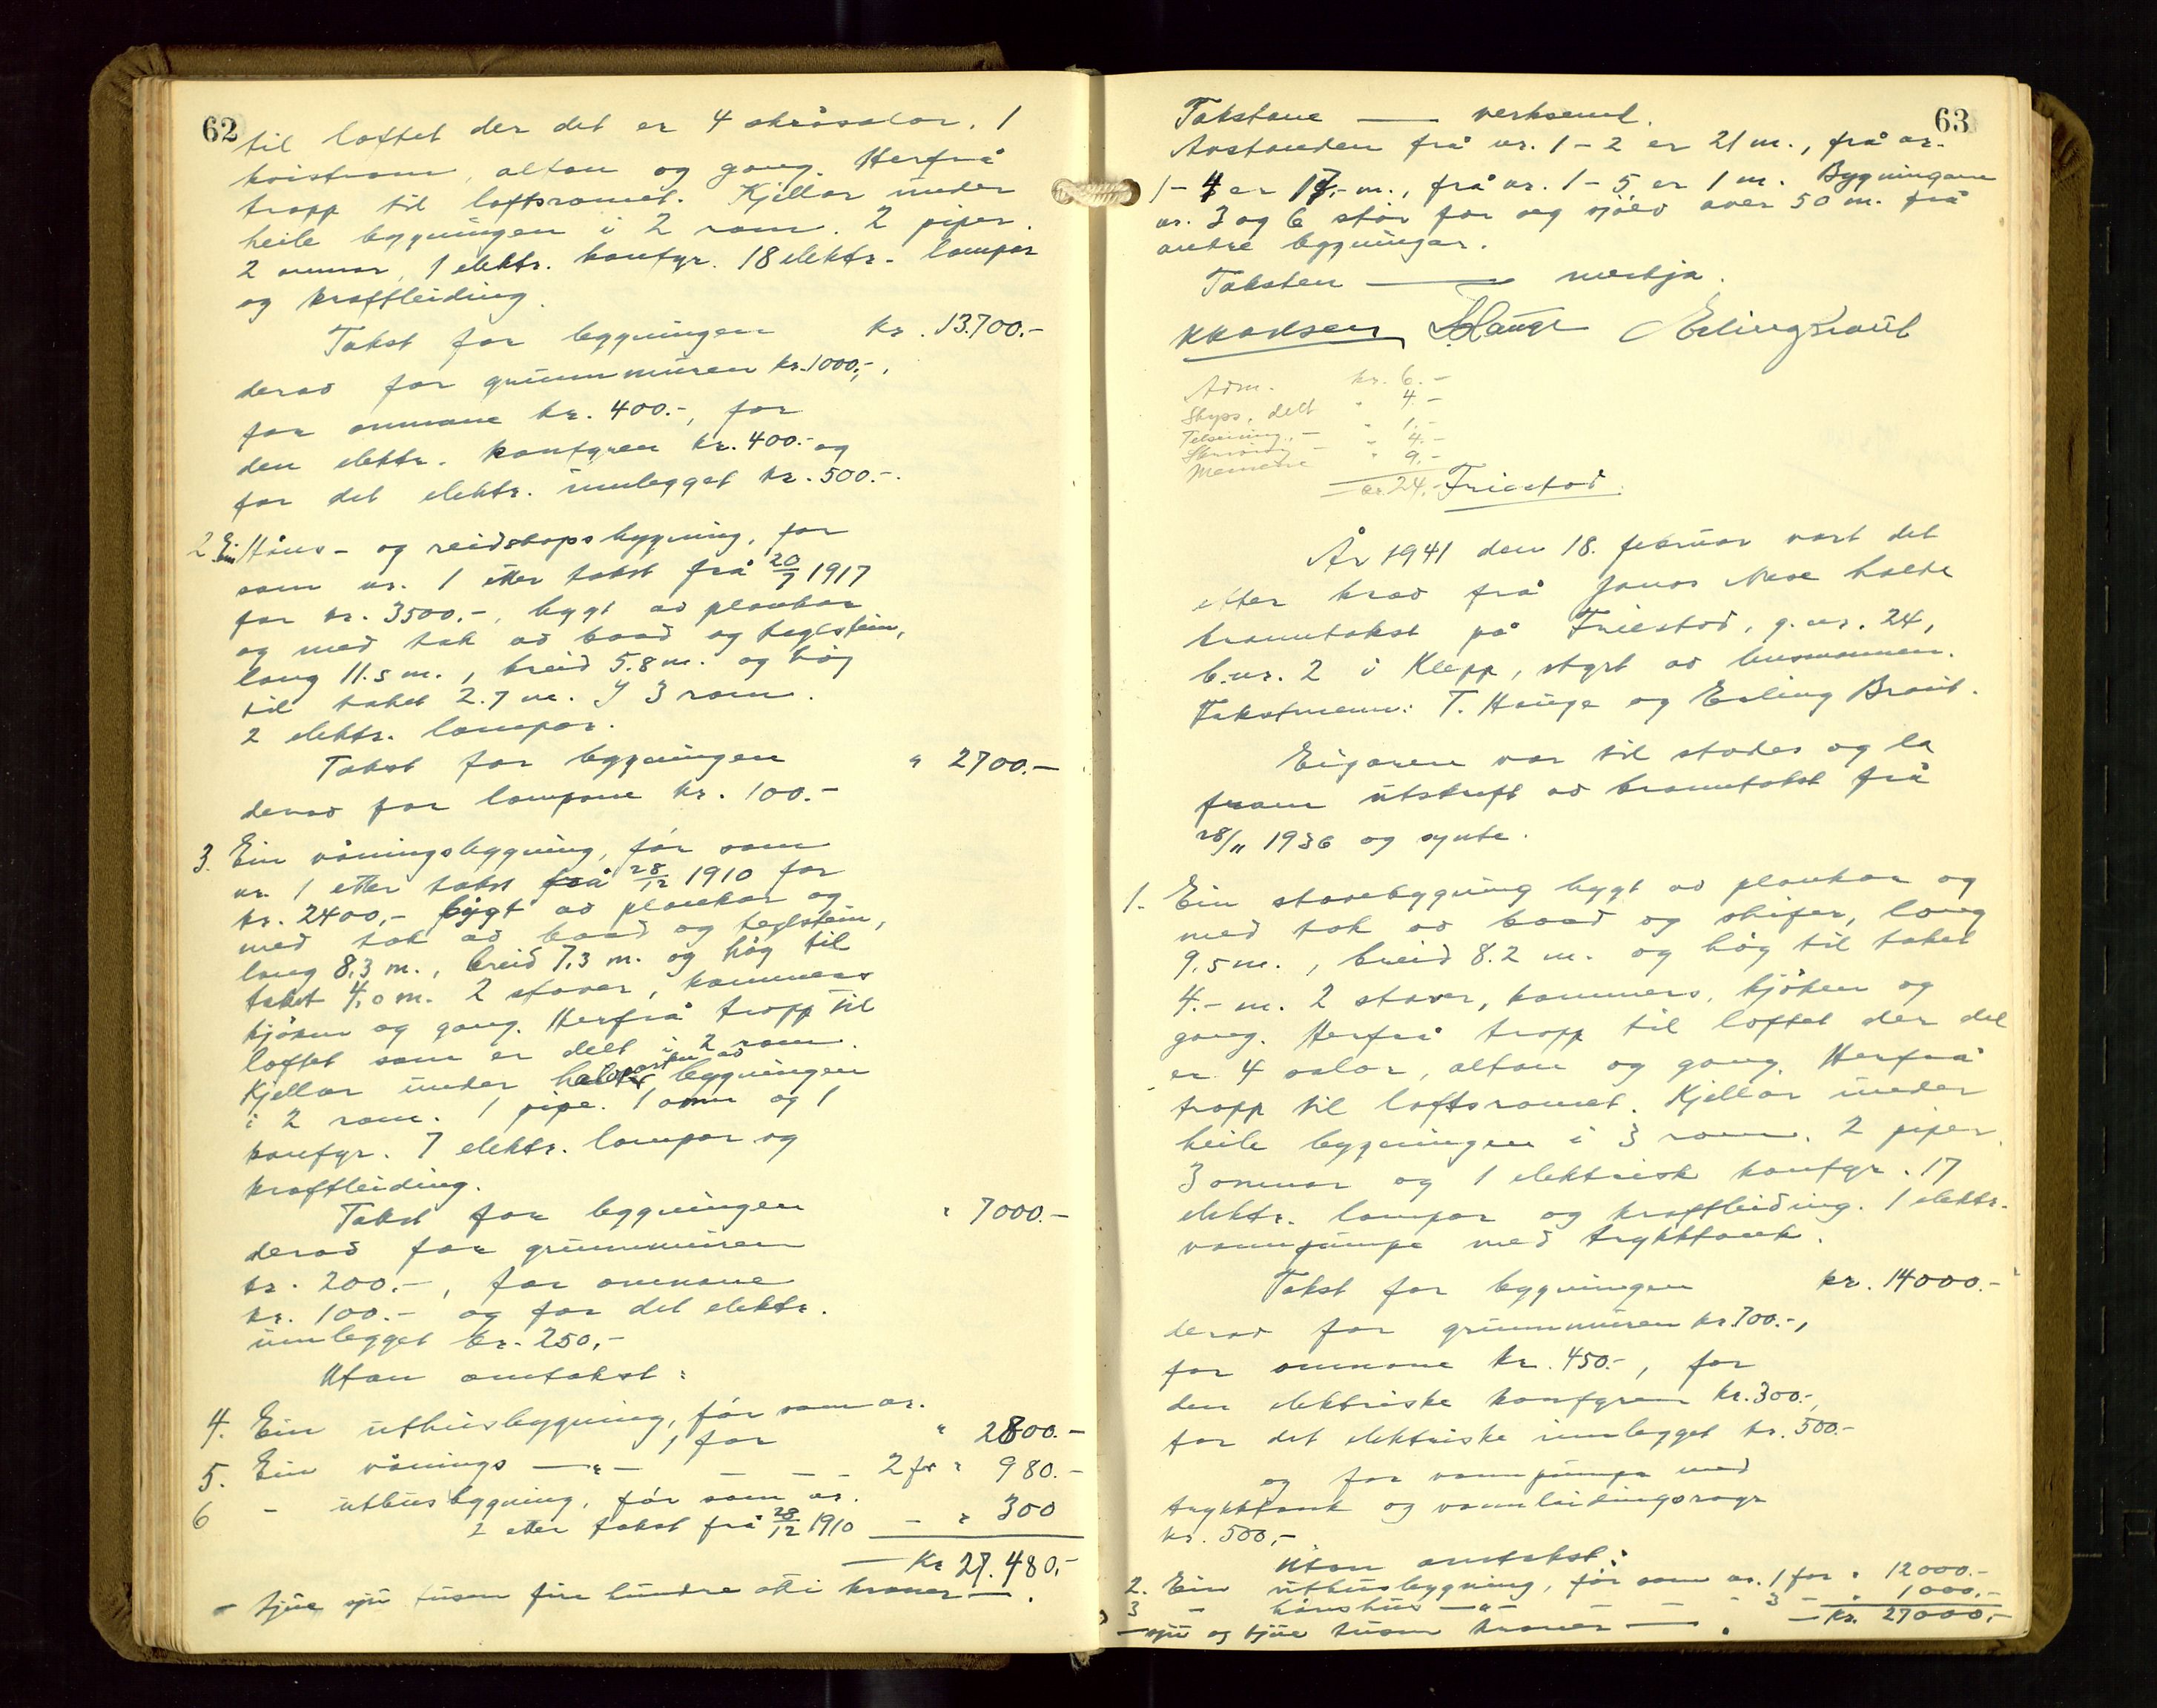 62
til loftet der det er 4 skråsalar, 1
kvistrom, altan og gang. Herfrå
tropp til loftsromet. Kjellar under
heile bygningen i 2 rom. 2 piper.
2 omnar, 1 elektr. komfyr. 18 elektr. lampor
og kraftleiding.
Takst for bygningen kr. 13.700.-
derav for grunnmuren kr. 1000,-,
for omnane kr. 400.-, for
den elektr. komfyren kr. 400.- og
for det elektr. innlegget kr. 500.-.
2. Ein Høns- og reidskapsbygning, før
som nr. 1 etter takst frå 20/7 1917
for kr. 3500.-, bygt av plankar
og med tak av bord og teglstein,
lang 11.5 m., breid 5.8 m. og høg
til taket 2.7 m. I 3 rom.
2 elektr. lampor.
Takst for bygningen " 2700.-
derav for lampone kr. 100.-
3. Ein våningsbygning, før som
nr. 1 etter takst frå 28/12 1910 for
kr. 2400,- bygt av plankar og
med tak av bord og teglstein,
lang 8,3 m., breid 7,3 m. og høg til
taket 4,0 m. 2 stover, kammers
kjøken og gang. Herfrå tropp til
loftet som er delt i 2 rom.
Kjellar under halvparten av bygningen
i 2 rom. 1 pipe. 1 omn og 1
komfyr. 7 elektr. lampor og
kraftleiding.
Takst for bygningen " 7000.-
derav for grunnmuren
kr. 200.-, for omnane
kr. 100.- og for det elektr.
innlegget kr. 250,-
Utan omtakst:
4. Ein uthusbygning, før som nr.
, for " 2800.-
5. Ein vånings —"— - - - 2 for " 980.-
6 - uthusbygning, før som nr.
2 etter takst frå 28/12 1910 - " 300
— Kr 27.480,-
- tjue sju tusen fire hundre åtti kroner —.
63
Takstane — verksemd.
Avstanden frå nr. 1 - 2 er 21 m., frå nr.
1 - 4 er 17,- m., frå nr. 1 - 5 er 1 m. Bygningane
nr. 3 og 6 står for seg sjølv over 50 m. frå
andre bygningar.
Taksten — merkja.
T Hauge Erling Braut
Adm. kr. 6.-
Skyss, delt " 4.-
- " 1.-
- " 4.-
" 9.-
kr. 24,-
Friestad.
År 1941 den 18. februar vart det
etter krav frå Jonas Nese halde
branntakst på Friestad, g.nr. 24,
b.nr. 2 i Klepp, styrt av lensmannen.
Takstmenn: T. Hauge og Erling Braut.
Eigaren var til stades og la
fram utskrift av branntakst frå
28/11 1936 og synte.
1. Ein stovebygning bygt av plankar og
med tak av bord og skifer, lang
9,5 m., breid 8.2 m. og høg til taket
4.- m. 2 stover, kammers, kjøken og
gang. Herfrå tropp til loftet der det
er 4 salar, altan og gang. Herfrå
tropp til loftsromet. Kjellar under
heile bygningen i 3 rom. 2 piper.
3 omnar og 1 elektrisk komfyr. 17
elektr. lampor og kraftleiding. 1 elektr.
vannpumpe med trykktank.
Takst for bygningen kr. 14000.-
derav for grunnmuren kr. 700.-,
for omnane kr. 450.-, for
den elektriske komfyren kr. 300.-,
for det elektriske innlegget kr. 500.-
og for vannpumpe med
trykktank og vannleidingsrøyr
kr. 500,-
Utan omtakst:
2. Ein uthusbygning, før som nr. 1 for " 12000.-
3 - hønshus —"— - - - 3 - " 1000.-
— Kr. 27000,-
— sju og tjue tusen kroner —.